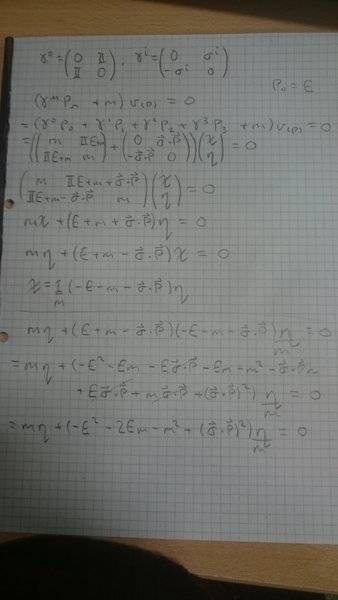 γ⁰ = (0 𝟙; 𝟙 0), γⁱ = (0 σⁱ; -σⁱ 0)
p₀ = E
(γᵘ pᵤ + m) v(p) = 0
= (γ⁰p₀ + γ¹p₁ + γ²p₂ + γ³p₃ + m) v(p) = 0
= ((m 𝟙E+m; 𝟙E+m m) + (0 σ⃗·p⃗; -σ⃗·p⃗ 0)) (χ; η) = 0
(m 𝟙E+m+σ⃗·p⃗; 𝟙E+m-σ⃗·p⃗ m) (χ; η) = 0
mχ + (E+m+σ⃗·p⃗)η = 0
mη + (E+m-σ⃗·p⃗)χ = 0
χ = 1/m (-E-m-σ⃗·p⃗)η
mη + (E+m-σ⃗·p⃗)(-E-m-σ⃗·p⃗) η/m = 0
= mη + (-E²-Em-Eσ⃗·p⃗-Em-m²-σ⃗·p⃗m
+ Eσ⃗·p⃗ + mσ⃗·p⃗ + (σ⃗·p⃗)²) η/m² = 0
= mη + (-E²-2Em-m²+(σ⃗·p⃗)²) η/m² = 0